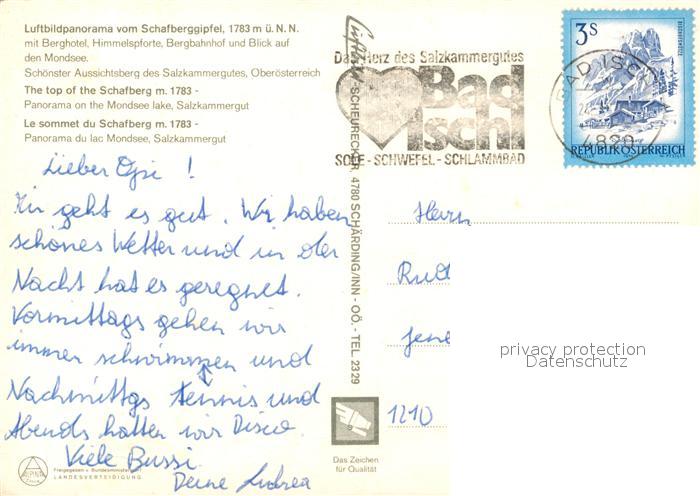 Luftbildpanorama vom Schafberggipfel, 1783 m ü. N. N.
mit Berghotel, Himmelspforte, Bergbahnhof und Blick auf
den Mondsee.
Schönster Aussichtsberg des Salzkammergutes, Oberösterreich
The top of the Schafberg m. 1783 -
Panorama on the Mondsee lake, Salzkammergut
Le sommet du Schafberg m. 1783 -
Panorama du lac Mondsee, Salzkammergut
Lieber Opi !
geht es gut. Wir haben
schönes Wetter und in der
Nacht hat es geregnet.
Vormittags gehen wir
immer schwimmen und
Nachmittgs tennis und
Abends hatten wir Disco.
Viele Bussi
Deine Andrea
ALPINA
Freigegeben v. Bundesministerium f.
LANDESVERTEIDIGUNG.
SCHEURECKER, 4780 SCHÄRDING/INN - OÖ. - TEL. 2329
Das Herz des Salzkammergutes
Bad
Ischl
SOLE - SCHWEFEL - SCHLAMMBAD
BAD ISCHL
4820
3 S
REPUBLIK ÖSTERREICH
Herrn
Rud
1210
privacy protection
Datenschutz
Das Zeichen
für Qualität